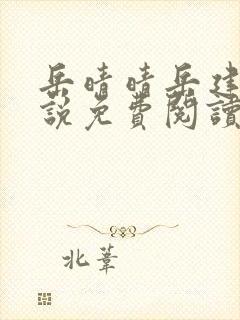 岳晴晴岳建
說免費閱讀
北葦